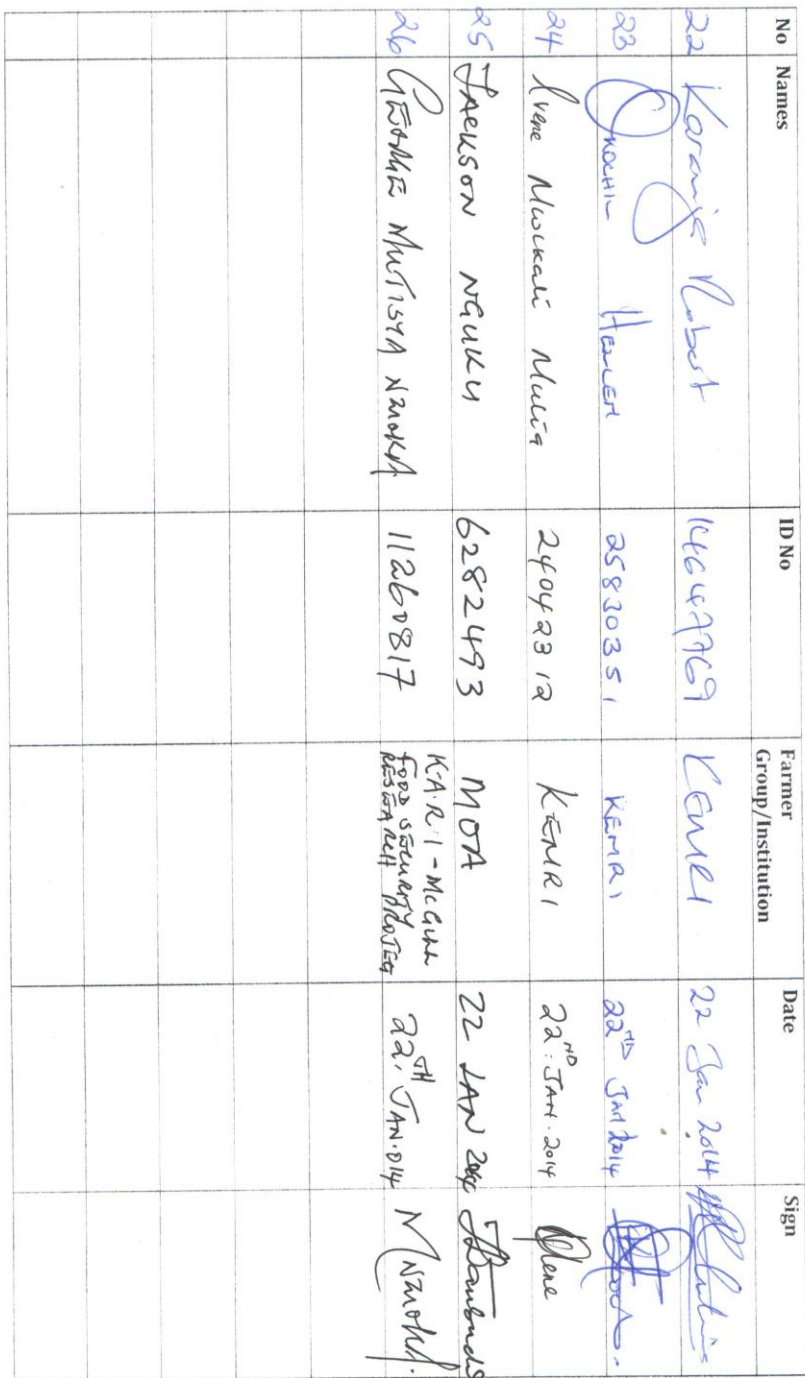 No Names ID No Farmer Group/Institution Date Sign
22 Karanja Robert KEMRI 22 Jan 2014
23 25830351 KEMRI 22ND JAN 2014
24 Irene Mwikali Mulia 24042312 KEMRI 22ND JAN. 2014 Irene
25 JACKSON NGUKU 6282493 MOA 22 JAN 2014
26 GEORGE MUTISYA NZIOKA 11260817 K.A.R.I - McGILL FOOD SECURITY RESEARCH PROJECT 22TH JAN.014 MNZIOKA.